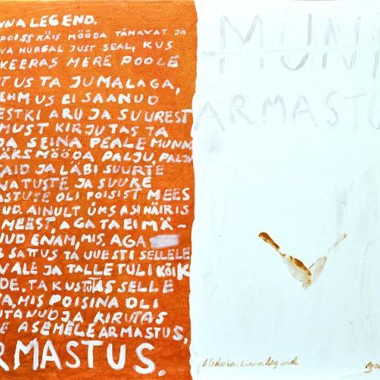 NNALEGEND.
POISS KÄIS MÖÖDA TÄNAVAT JA
VA NURGAL JUST SEAL, KUS
KEERAS MERE POOLE
TUS TA JUMALAGA,
EHMUS EI SAANUD
ESTKI ARU JA SUUREST
MUST KIRJUTAS TA
DA SEINA PEALE MUNN
ÄKS MÖÖDA PALJU, PALJU
AID JA LÄBI SUURTE
NATUSTE JA SUURE
ASTUSE OLI POISIST MEES
UD. AINULT ÜKS ASI HÄIRIS
MEEST, AGA TA EI MÄ-
UD ENAM, MIS. AGA
SATUS TA UUESTI SELLELE
VALE JA TALLE TULI KÕIK
DE. TA KUSTUTAS SELLE
A, MIS POISINA OLI
UTANUD JA KIRUTAS
E ASEMELE ARMASTUS,
RMASTUS.
MUNN
ARMASTUS
linnalegend